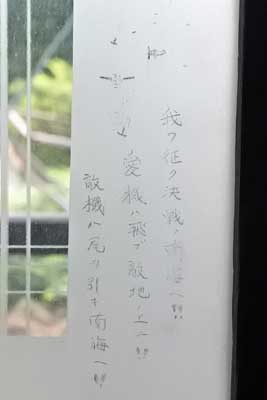 我ラ征ク決戦ノ南海ヘ!!
愛機ハ飛ブ敵地ノ上ニ!!
敵機ハ尾ヲ引キ南海ヘ!!